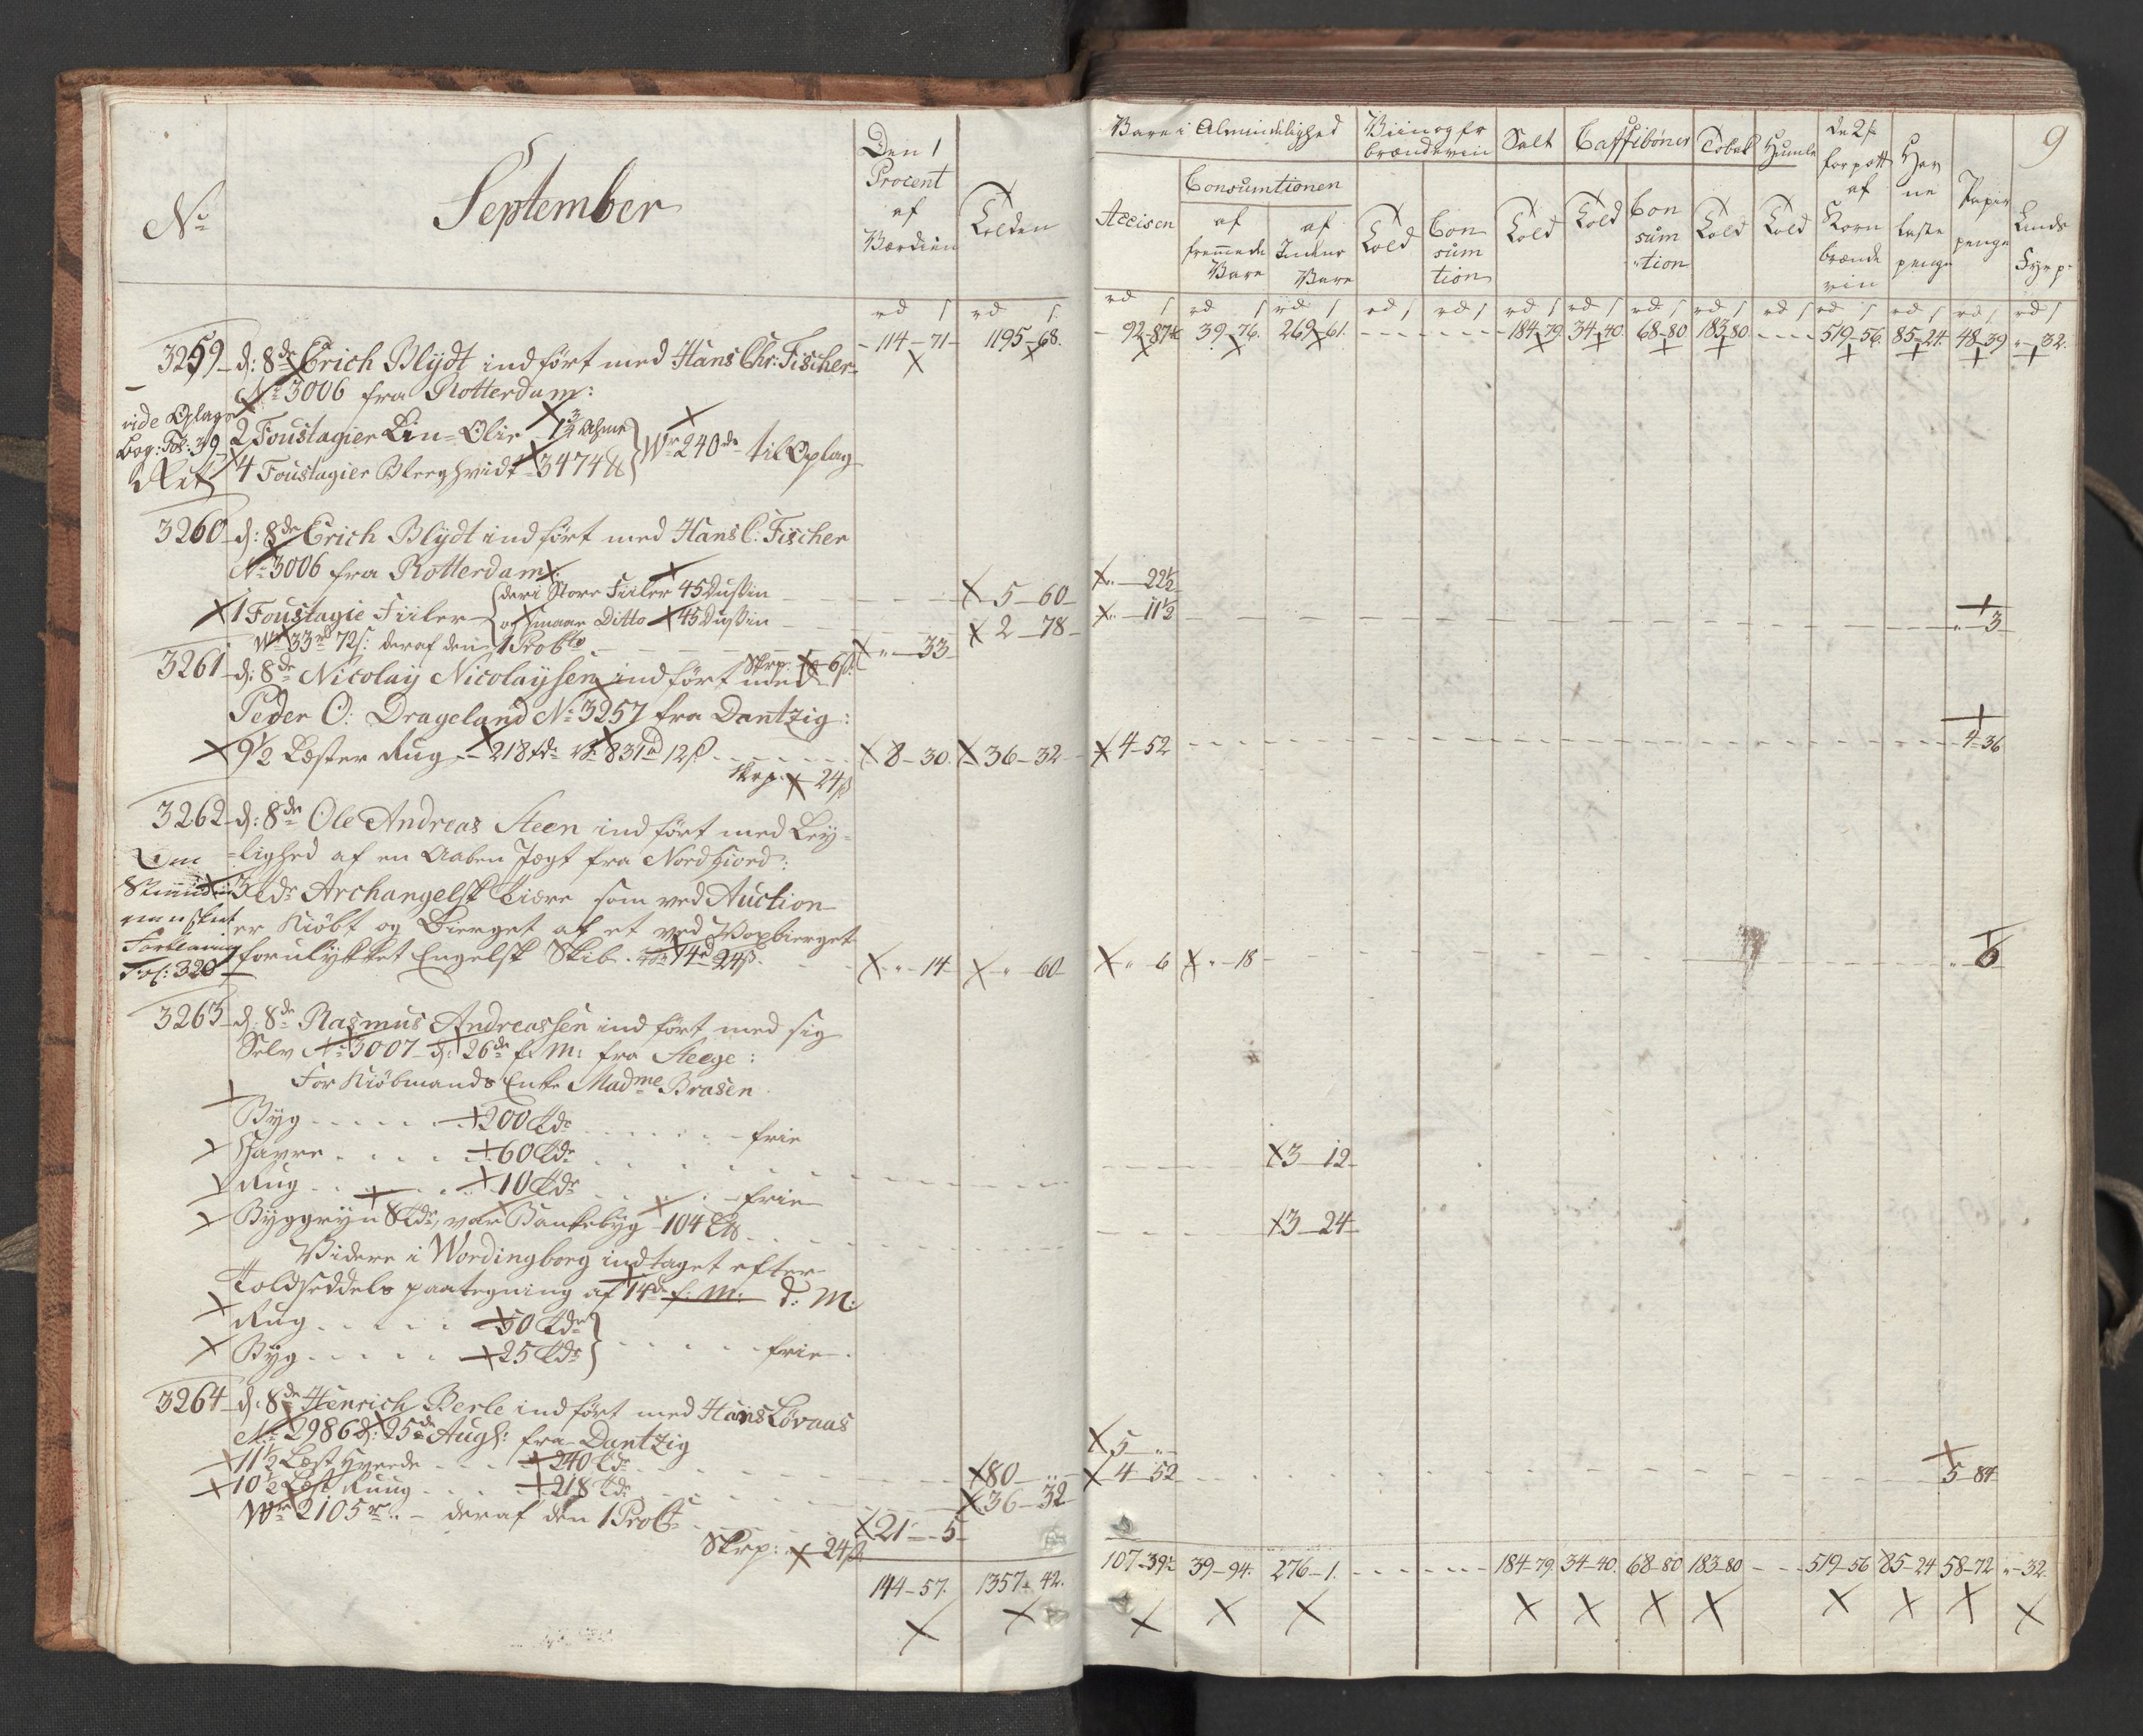 9
No
September
Den 1 Procent af Værdien
Tolden
Vare i Almindelighed
Accisen
Consumtionen
af fremmede Vare
af Indenr Vare
Viin og fr brændeviin
Told
Consumtion
Salt
Told
Caffebønner
Told
Consumtion
Tobak
Told
Humle
Told
de 2 s for pott af Korn brændeviin
Havne laste penge
Papir penge
114-71 1195-68. 92-87½ 39-76. 269-61. 184-79 34-40 68-80 183-80 519-56. 85-24 48-39 "-32.
3259 d: 8de Erich Blydt indført med Hans Chr: Fischer
No 3006 fra Rotterdam:
vide Oplags
Bog: Fol: 39
2 Foustagier Lin-Olie 1¾ Ahme
4 Foustagier Bleeghvidt 3474 ℔ Wr 240 rd til Oplag
3260 d: 8de Erich Blydt indført med Hans C: Fischer
No 3006 fra Rotterdam:
1 Foustagie Fiiler deri Store Fiiler 45 Dussin 5-60 "-22½
og smaae Ditto 45 Dussin 2-78 "-11½ "-3
Wr 33 rd 72 s: deraf den 1 Procto "-33
Skrp: 6 s
3261 d: 8de Nicolay Nicolaysen indført med
Peder O: Drageland No 3257 fra Dantzig:
9½ Læster Rug 218 tdr Wr 831 rd 12 s 8-30. 36-32 4-52 4-36
Skrp. 24 s
3262 d: 8de Ole Andreas Steen indført med Ley-
-lighed af en Aaben Jægt fra Nordfiord:
3 tdr Archangelsk Tiære som ved Auction
er Kiøbt og Bierget af et ved
forulykket Engelsk Skib. Wr 14 rd 24 s. "-14 "-60 "-6 "-18 "-6
Fol: 320
3263 d: 8de Rasmus Andreassen indført med sig
Selv No 3007 d: 26de f: M: fra Steege:
For Kiøbmands Enke Madme Brasen
Byg 200 tdr frie
Havre 60 tdr 3-12
Rug 10 tdr frie
Byggryn 8 tdr, var Bankebyg 104 L℔ 3-24
Videre i Wordingborg indtaget efter
Toldseddels paategning af 14de f: M: d: M:
Rug 50 tdr
Byg 25 tdr frie
3264 d: 8de Henrich Berle indført med Hans Løvaas
No 2986 d: 25de Augs: fra Dantzig
11½ Læst Hvede 240 td 80-" 5-"
10½ Læst Ruug 218 td 36-32 4-52 5-84
Wr 2105 rd - deraf den 1 Proct 21-5
Skrp: 24 s
144-57. 1357-42. 107-39½ 39-94. 276-1. 184-79. 34-40. 68-80 183-80 519-56 85-24 58-72 "-32.